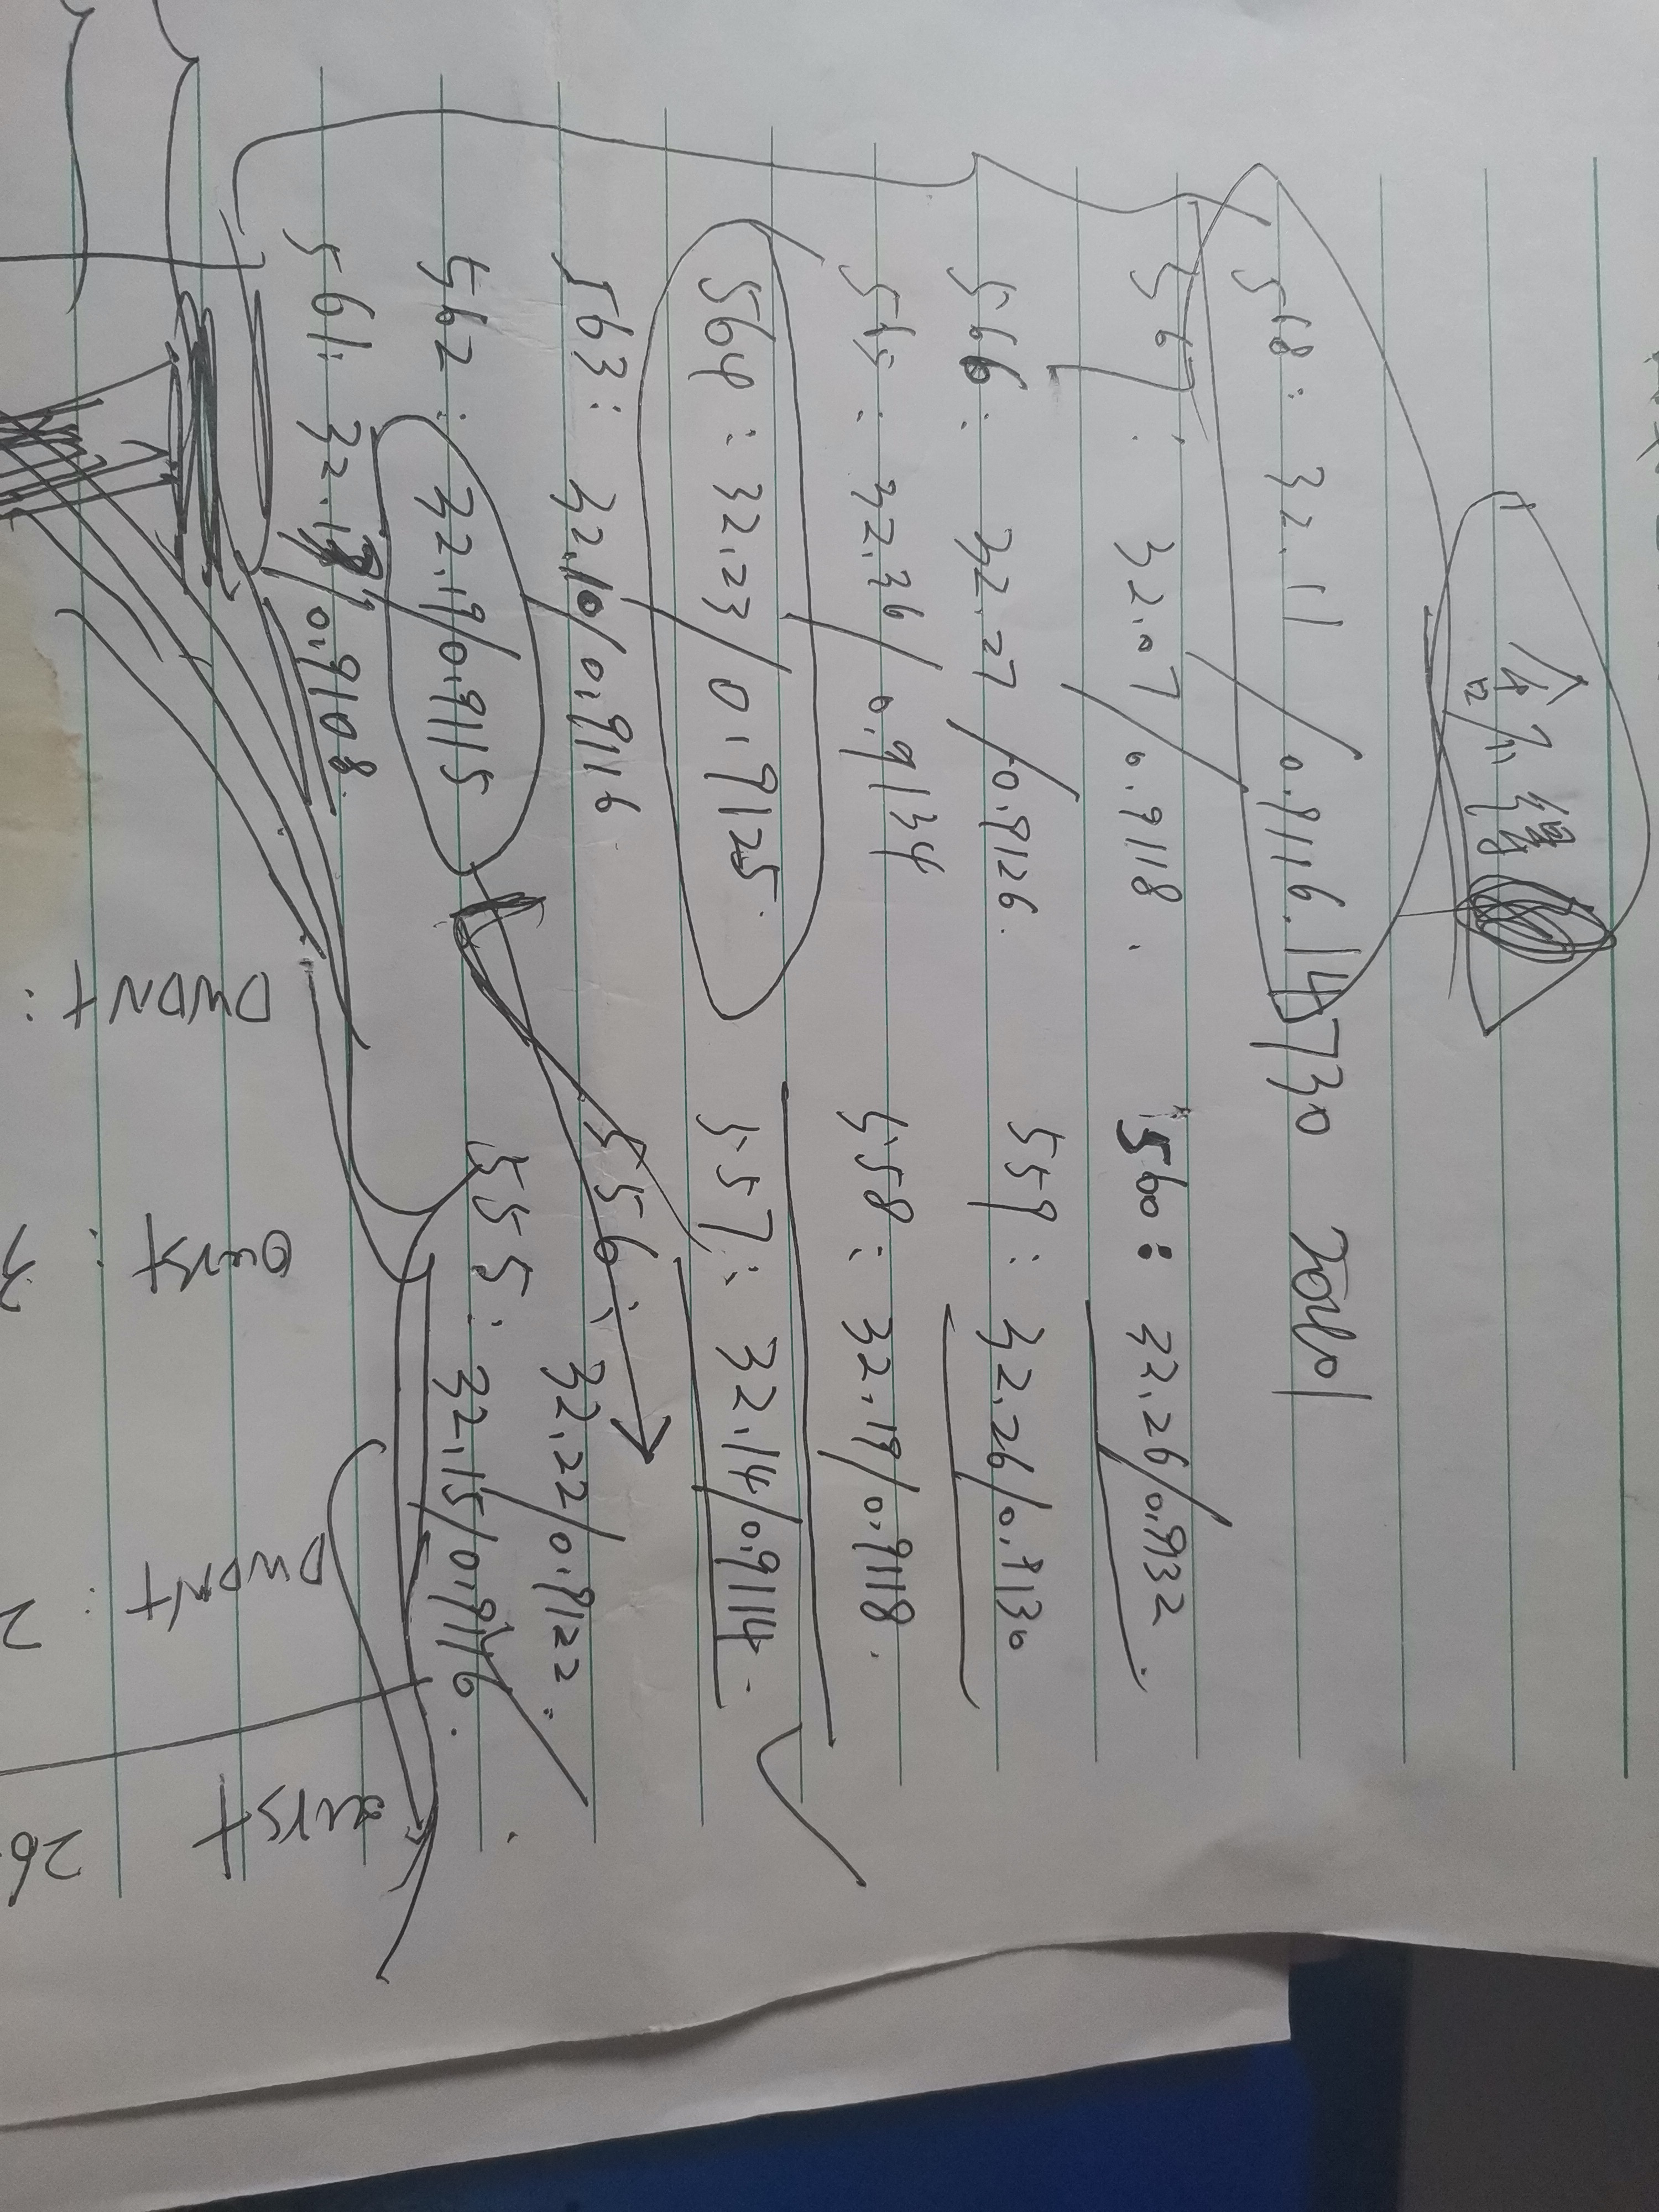 568: 32.11/0.9116.
567: 32.07/0.9118.
566: 32.27/0.9126.
565: 32.36/0.9134
564: 32.23/0.9125.
563: 32.10/0.9116
562: 32.19/0.9115
561: 0.9108.
560: 32.26/0.9132
559: 32.26/0.9130
558: 32.19/0.9118.
557: 32.14/0.9114.
556: 32.22/0.9122.
555: 32.15/0.9116.
DWDNT:
OURST:
DWDNT:
OURST
26